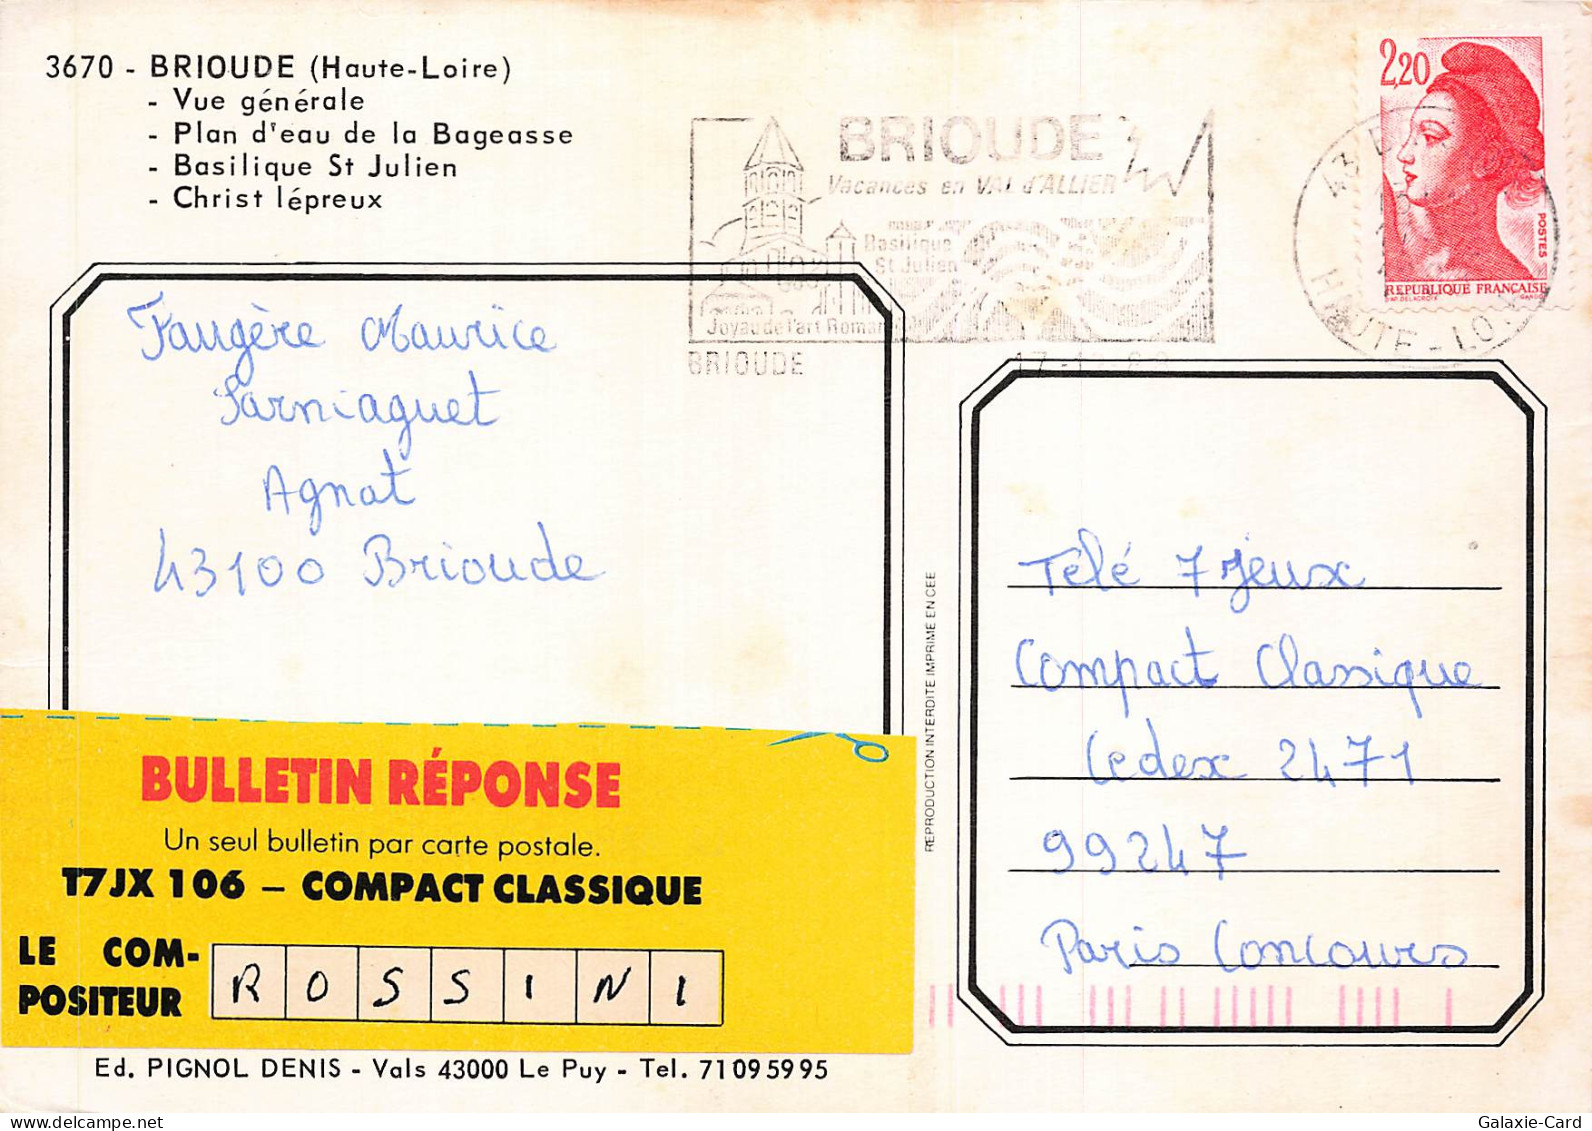 3670 - BRIOUDE (Haute-Loire)
- Vue générale
- Plan d'eau de la Bageasse
- Basilique St Julien
- Christ lépreux
BRIOUDE
Vacances en VAL d'ALLIER
Basilique
St Julien
Joyau de l'art Roman
BRIOUDE
43
HAUTE-LO
2,20
POSTES
REPUBLIQUE FRANÇAISE
Faugère Maurice
Sarniaguet
Agnat
43100 Brioude
BULLETIN RÉPONSE
Un seul bulletin par carte postale.
T7JX 106 – COMPACT CLASSIQUE
LE COM-
POSITEUR
ROSSINI
Ed. PIGNOL DENIS - Vals 43000 Le Puy - Tel. 71095995
REPRODUCTION INTERDITE IMPRIME EN CEE
Télé 7 Jeux
Compact Classique
Cedex 2471
99247
Paris Concours
Galaxie-Card